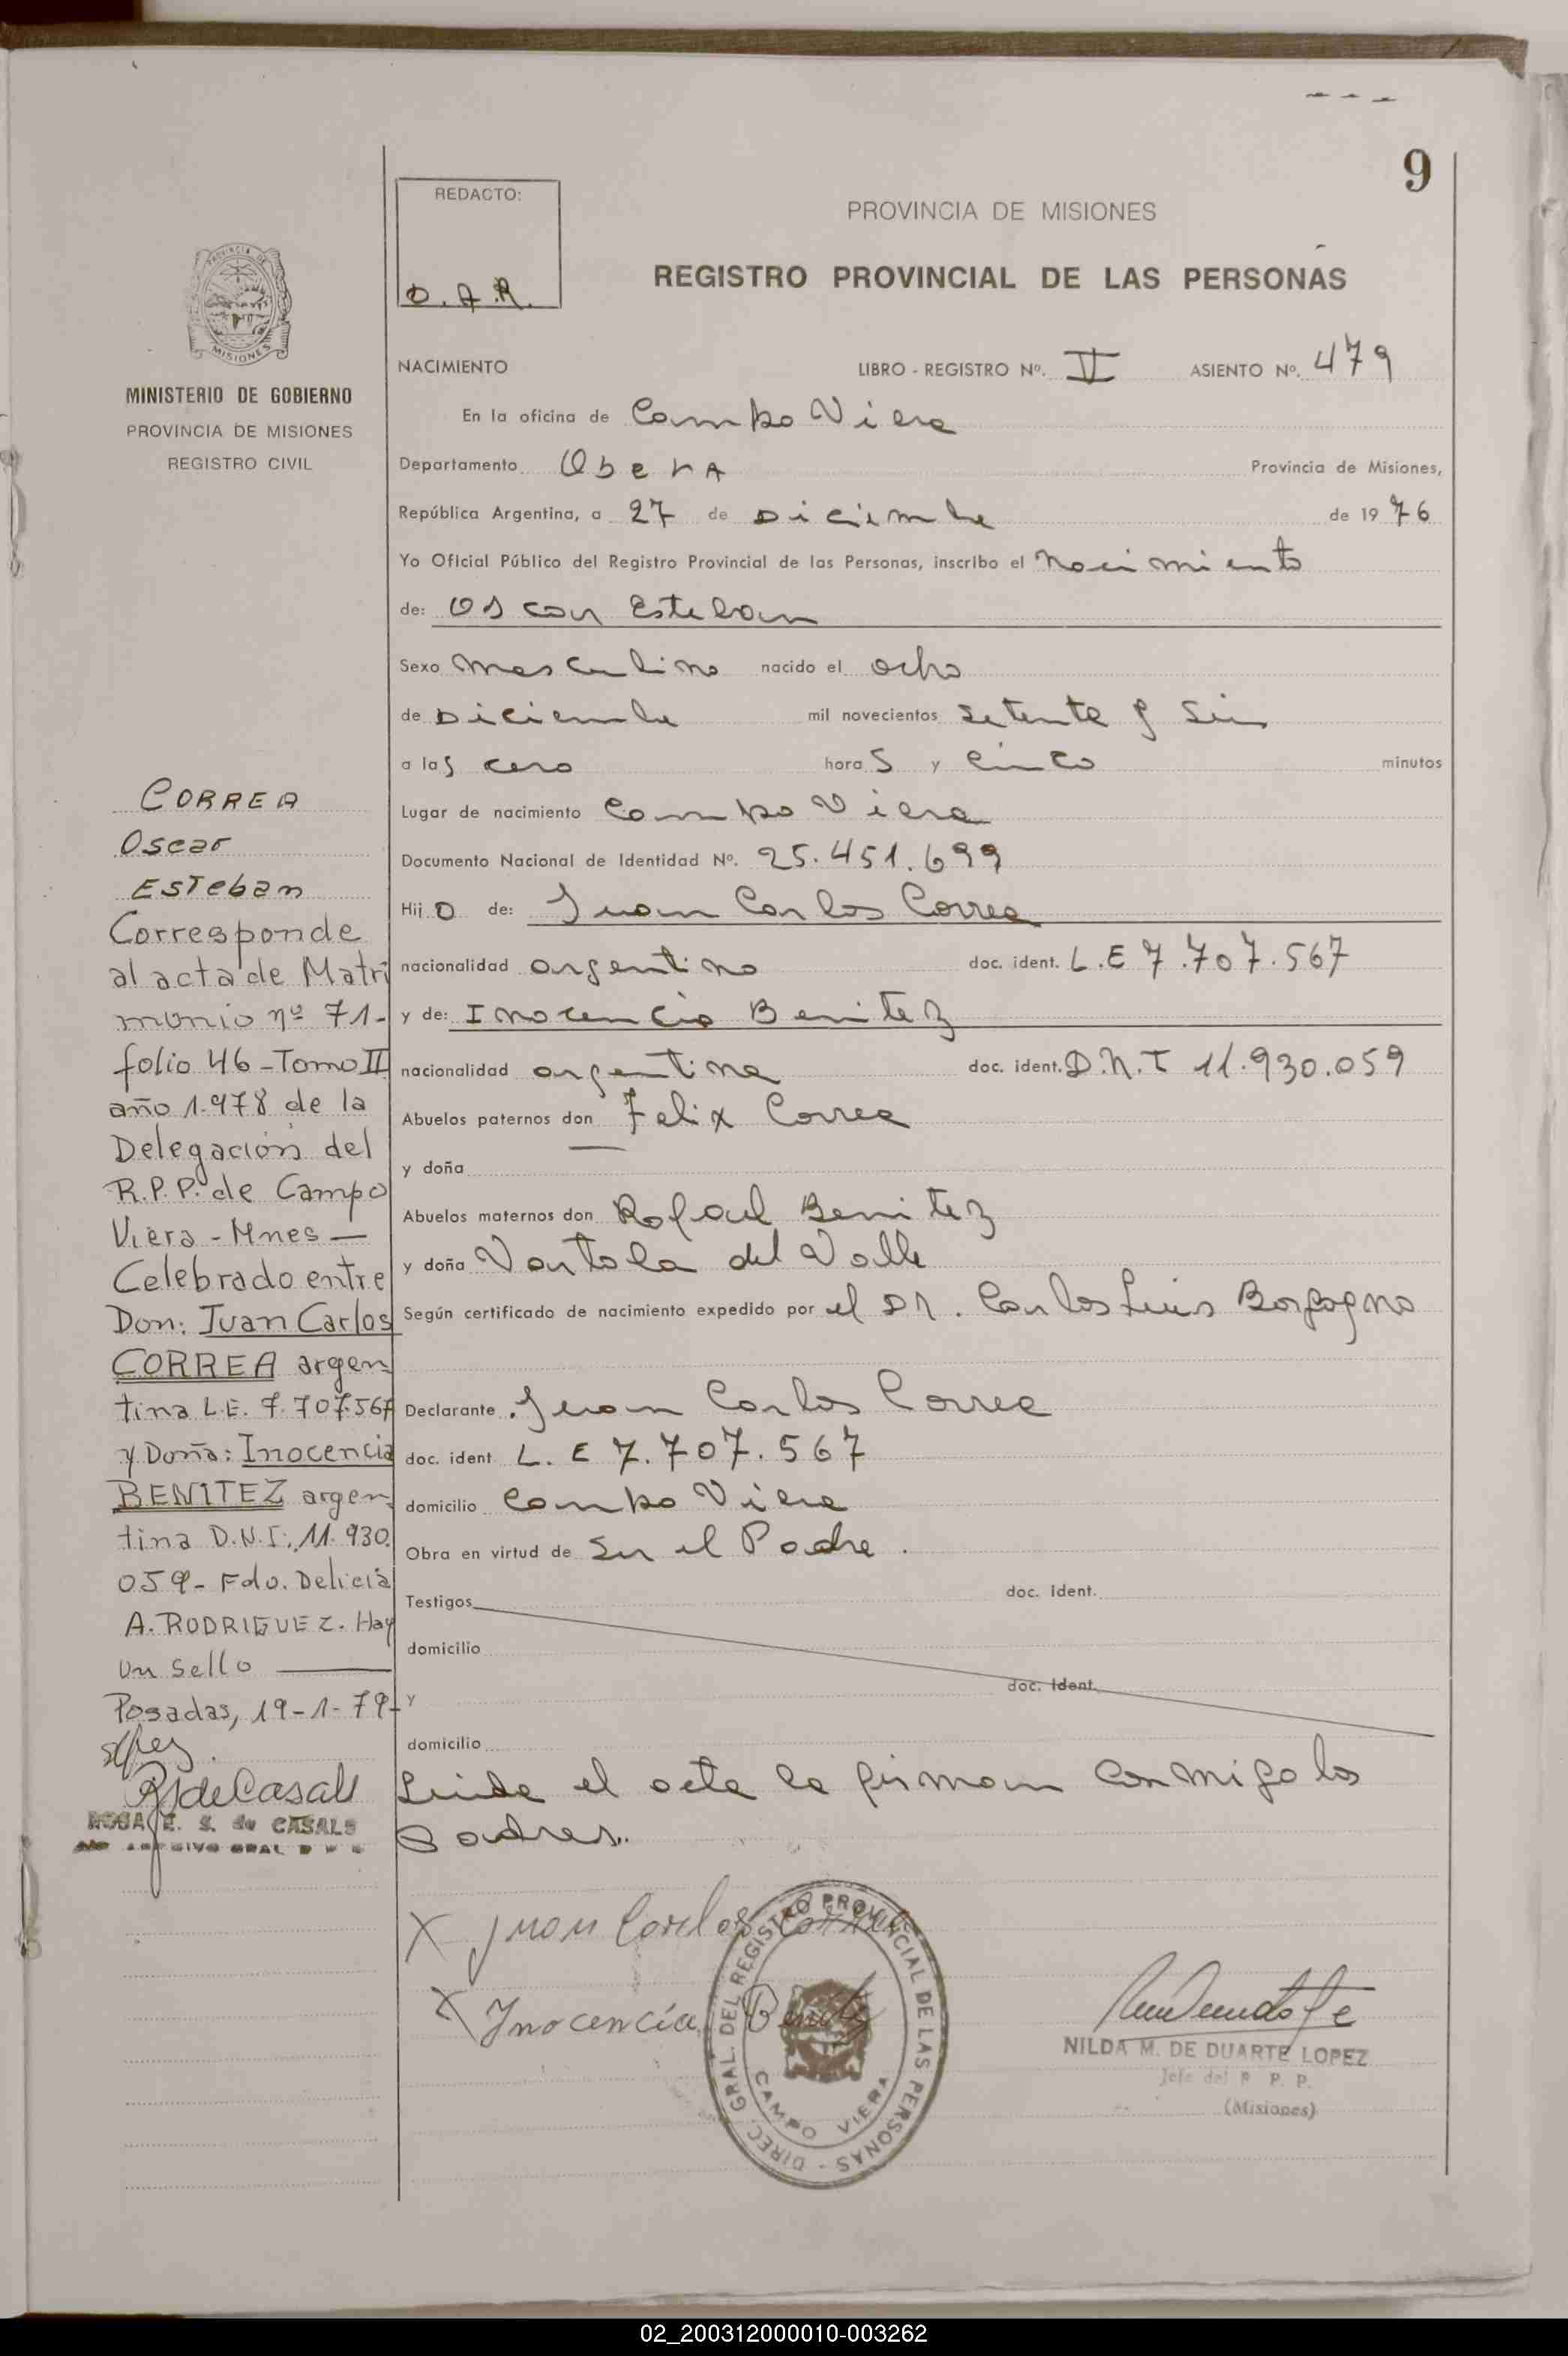 9
REDACTO:
O.A.R.
PROVINCIA DE MISIONES
REGISTRO PROVINCIAL DE LAS PERSONAS
PROVINCIA DE
MISIONES
MINISTERIO DE GOBIERNO
PROVINCIA DE MISIONES
REGISTRO CIVIL
NACIMIENTO LIBRO - REGISTRO Nº. II ASIENTO Nº. 479
En la oficina de Campo Viera
Departamento Obera Provincia de Misiones,
República Argentina, a 27 de Diciembre de 1976
Yo Oficial Público del Registro Provincial de las Personas, inscribo el Nacimiento
de: Oscar Esteban
Sexo Masculino nacido el ocho
de Diciembre mil novecientos Setenta y Seis
a las cero horas y cinco minutos
Lugar de nacimiento Campo Viera
Documento Nacional de Identidad Nº. 25.451.699
Hijo de: Juan Carlos Correa
nacionalidad argentino doc. ident. L.E 7.707.567
y de: Inocencia Benitez
nacionalidad argentina doc. ident. D.N.I 11.930.059
Abuelos paternos don Felix Correa
y doña
Abuelos maternos don Rafael Benitez
y doña del Valle
Según certificado de nacimiento expedido por el Dr. Carlos Luis Borgogno
Declarante Juan Carlos Correa
doc. ident L.E 7.707.567
domicilio Campo Viera
Obra en virtud de Ser el Padre.
Testigos doc. ident.
domicilio
y doc. ident.
domicilio
Leida el acta la firman conmigo los
Padres.
X Juan Carlos Correa
X Inocencia Benitez
DIREC. GRAL. DEL REGISTRO PROVINCIAL DE LAS PERSONAS -
CAMPO VIERA
NILDA M. DE DUARTE LOPEZ
Jefe del R. P. P.
(Misiones)
CORREA
Oscar
Esteban
Corresponde
al acta de Matri
monio nº 71-
folio 46 - Tomo II
año 1.978 de la
Delegación del
R.P.P. de Campo
Viera - Mnes —
Celebrado entre
Don: Juan Carlos
CORREA argen
tina L.E. 7.707.567
y Doña: Inocencia
BENITEZ argen
tina D.N.I. 11.930.
059- Fdo. Delicia
A. RODRIGUEZ. Hay
un sello —
Posadas, 19-1-79-
RSdeCasals
ROSA E. S. de CASALS
02_200312000010-003262